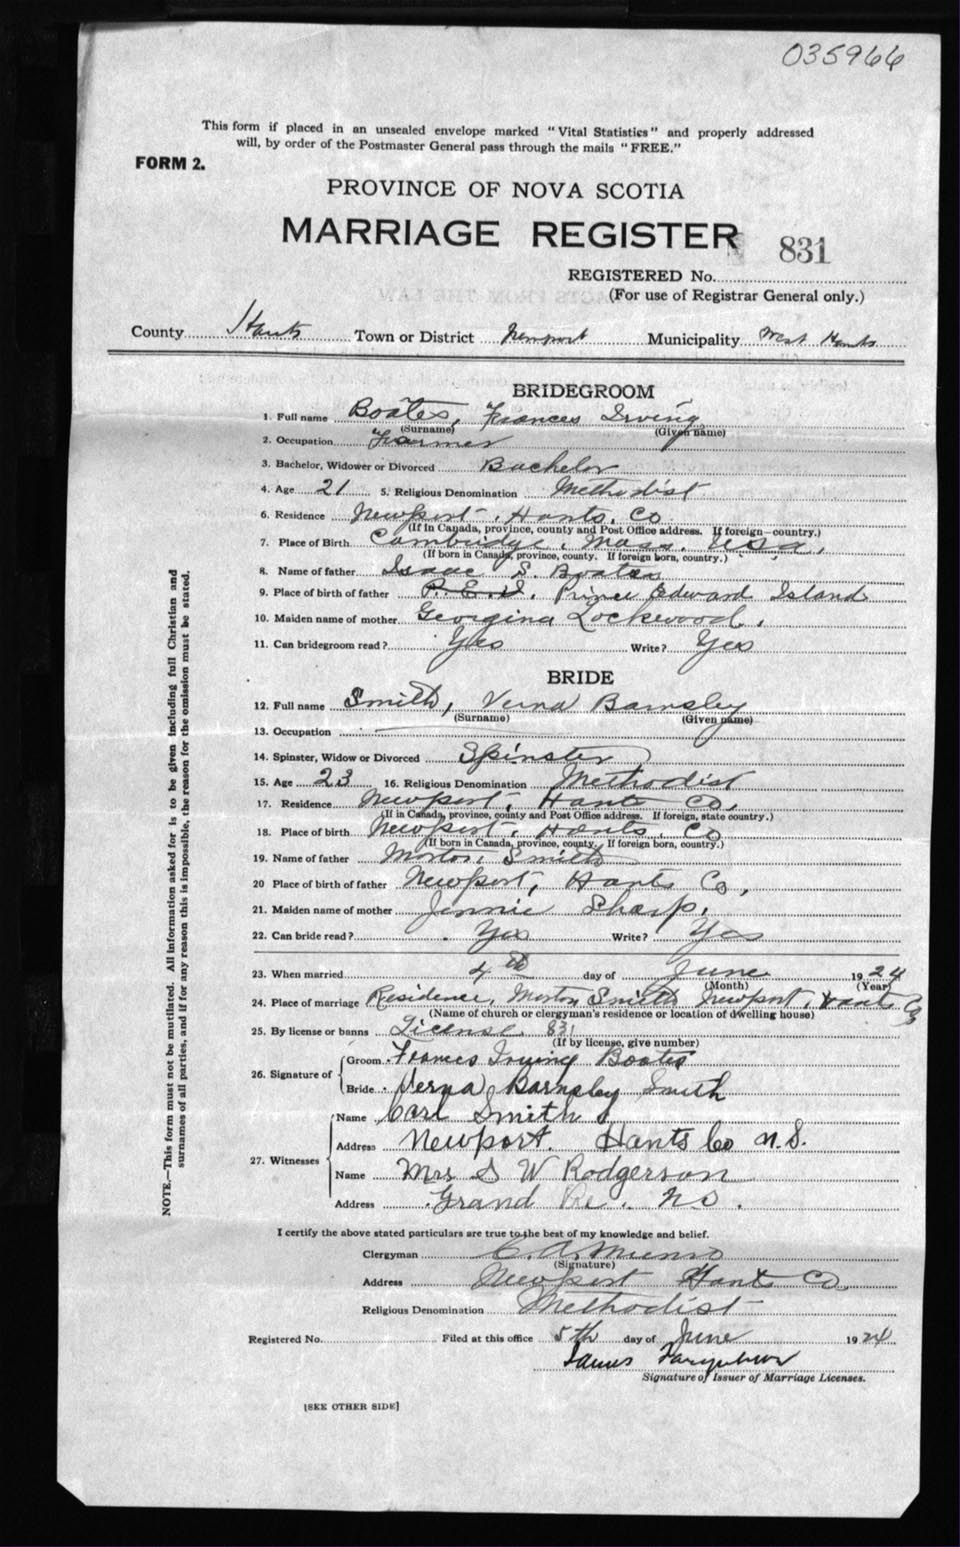 035966
This form if placed in an unsealed envelope marked "Vital Statistics" and properly addressed
will, by order of the Postmaster General pass through the mails "FREE."
FORM 2.
PROVINCE OF NOVA SCOTIA
MARRIAGE REGISTER
831
REGISTERED No.
(For use of Registrar General only.)
County Hants Town or District Newport Municipality West Hants
BRIDEGROOM
1. Full name Boates, Frances Irving
(Surname) (Given name)
2. Occupation Farmer
3. Bachelor, Widower or Divorced Bachelor
4. Age 21 5. Religious Denomination Methodist
6. Residence Newport, Hants, Co
(If in Canada, province, county and Post Office address. If foreign—country.)
7. Place of Birth Cambridge, Mass, USA,
(If born in Canada, province, county. If foreign born, country.)
8. Name of father Isaac S. Boates
9. Place of birth of father P.E.I. Prince Edward Island
10. Maiden name of mother Georgina Lockwood,
11. Can bridegroom read? Yes Write? Yes
BRIDE
12. Full name Smith, Verna Barnsley
(Surname) (Given name)
13. Occupation
14. Spinster, Widow or Divorced Spinster
15. Age 23 16. Religious Denomination Methodist
17. Residence Newport, Hants Co,
(If in Canada, province, county and Post Office address. If foreign, state country.)
18. Place of birth Newport, Hants, Co
(If born in Canada, province, county. If foreign born, country.)
19. Name of father Morton, Smith
20 Place of birth of father Newport, Hants Co,
21. Maiden name of mother Jennie Sharp,
22. Can bride read? Yes Write? Yes
23. When married 4th day of June 1924
(Month) (Year)
24. Place of marriage Residence, Morton Smith Newport, Hants Co
(Name of church or clergyman's residence or location of dwelling house)
25. By license or banns License 831
(If by license, give number)
26. Signature of Groom Frances Irving Boates
Bride Verna Barnsley Smith
27. Witnesses Name Carl Smith
Address Newport. Hants Co N.S.
Name Mrs S W Rodgerson
Address Grand Pre. NS.
I certify the above stated particulars are true to the best of my knowledge and belief.
Clergyman C. A. Munro
(Signature)
Address Newport Hants Co
Religious Denomination Methodist
Registered No. Filed at this office 5th day of June 1924
James
Signature of Issuer of Marriage Licenses.
[SEE OTHER SIDE]
NOTE.—This form must not be mutilated. All information asked for is to be given including full Christian and
surnames of all parties, and if for any reason this is impossible, the reason for the omission must be stated.